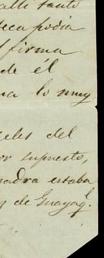 alle tanto
teca podia
firma
de él
na lo muy
eles del
or supuesto,
uadra estaba
y de Guayaql.